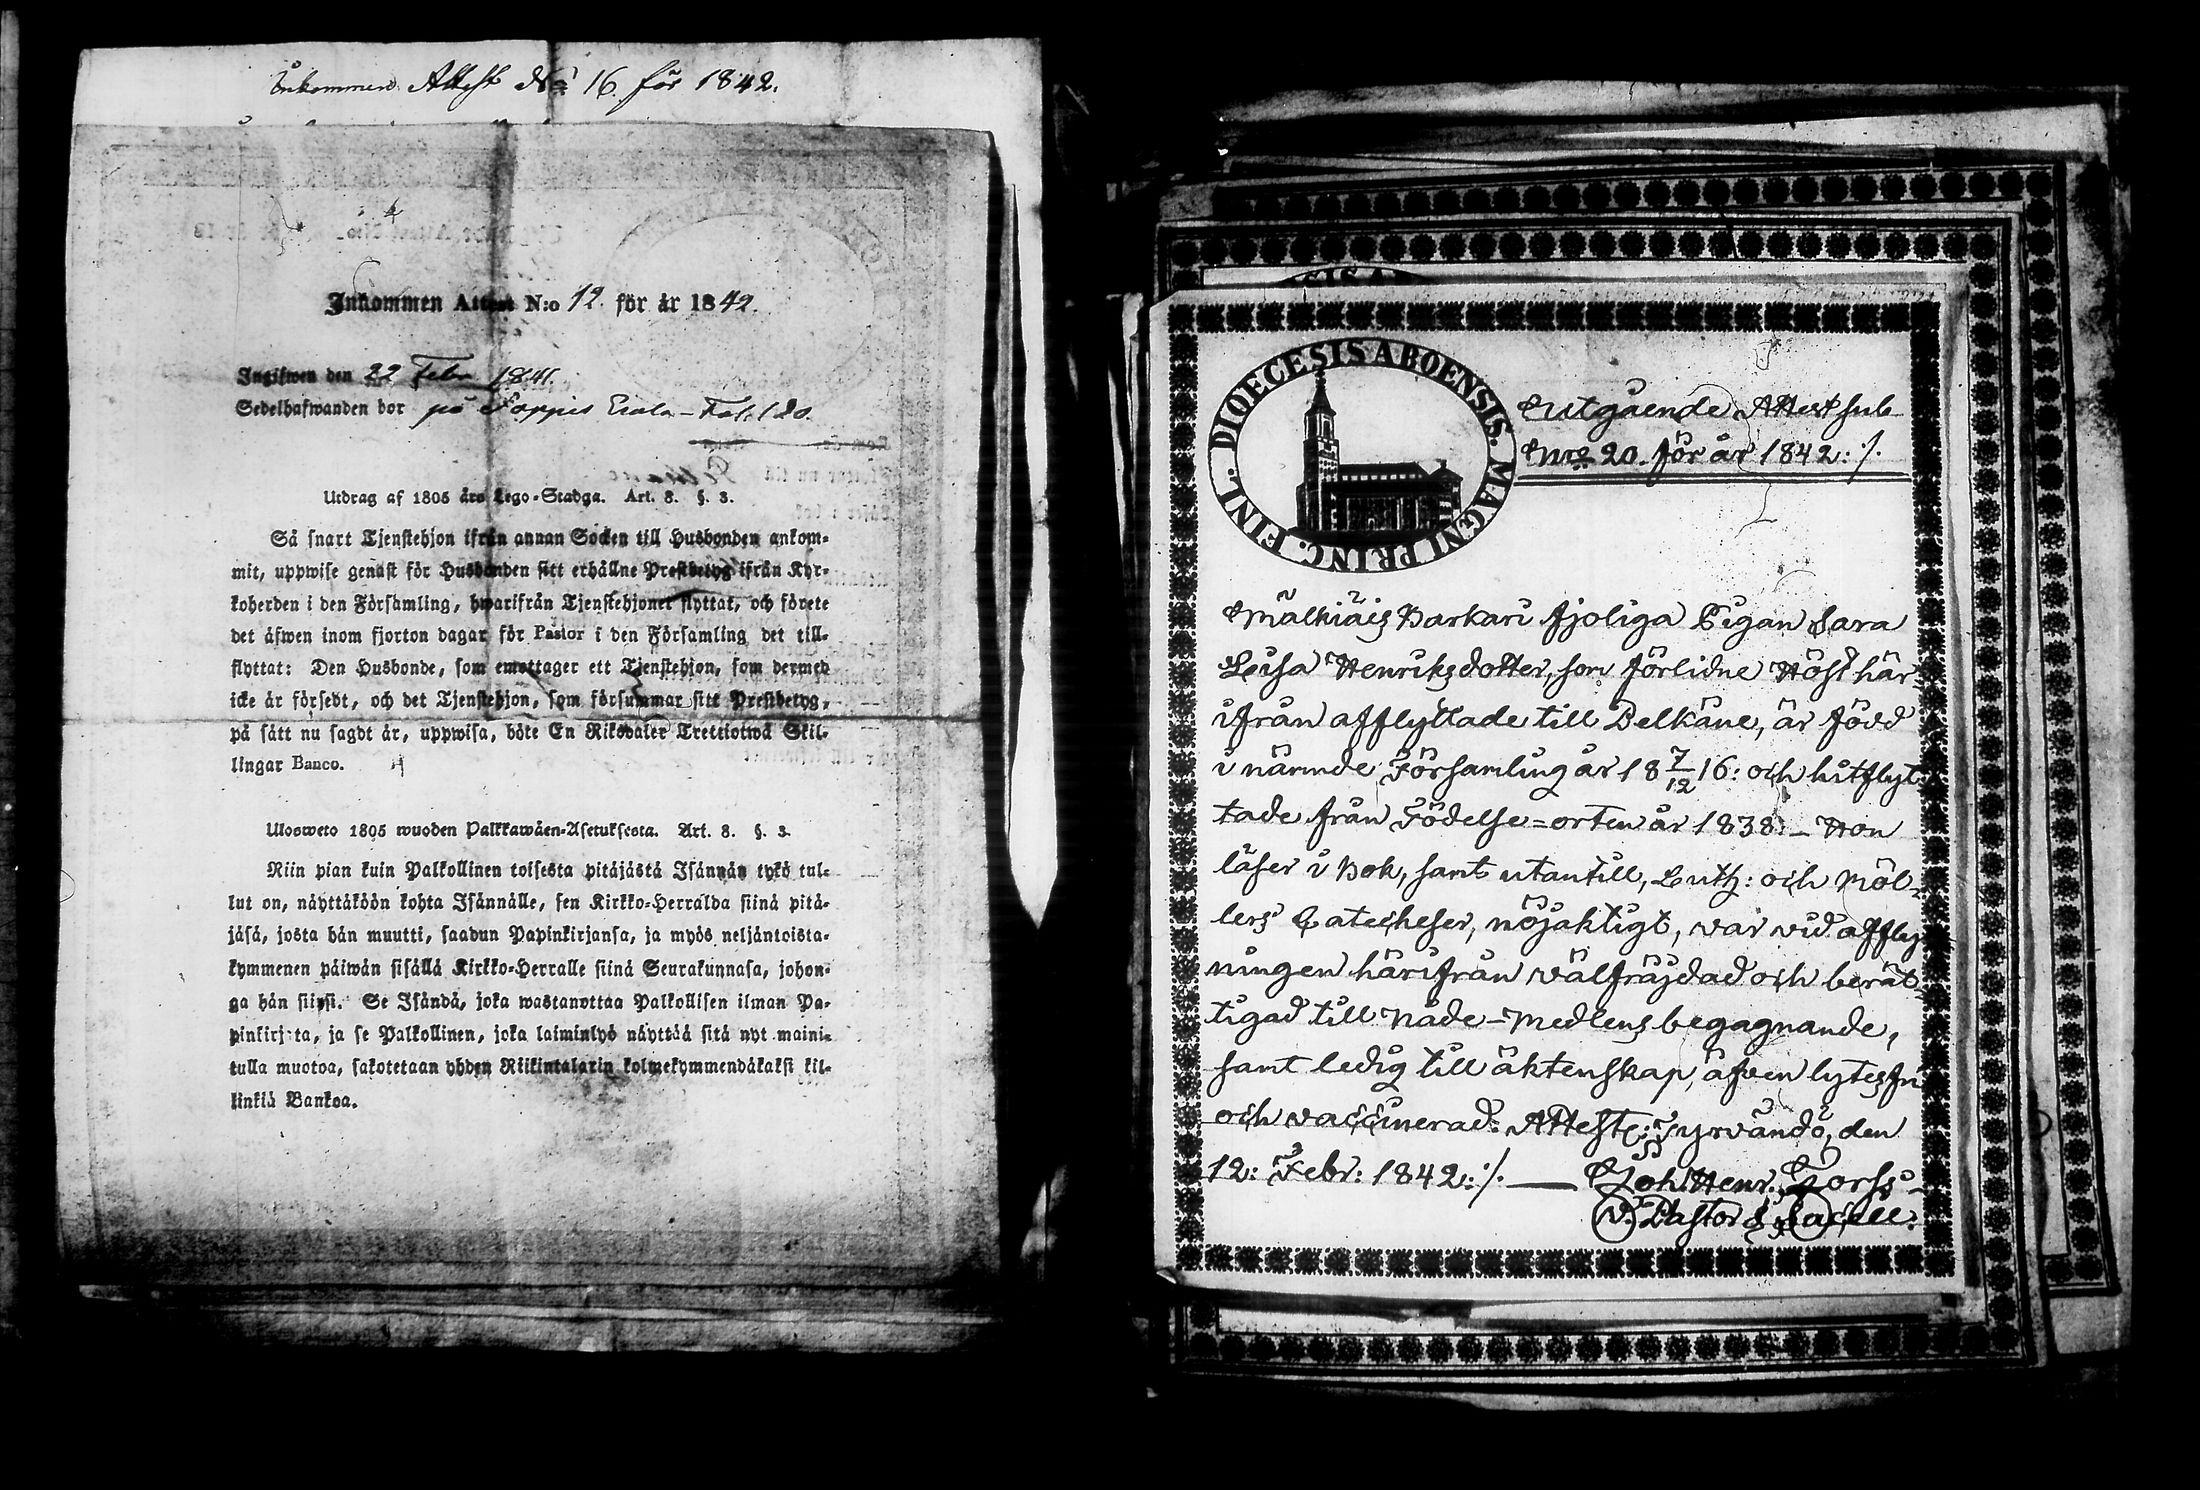 Inkommen Attest No 16. för 1842.
Inkommen Attest N:o 12. för år 1842.
Ingifwen den 22 Febr 1841.
Sedelhafwanden bor på
Utdrag af 1805 års Lego-Stadga. Art. 8. §. 3.
Så snart Tjenstehjon ifrån annan Socken till Husbonden ankom-
mit, uppwise genast för Husbonden sitt erhållne Prestbetyg ifrån Kyr-
koherden i den Församling, hwarifrån Tjenstehjonet flyttat, och förete
det äfwen inom fjorton dagar för Pastor i den Församling det till-
flyttat: Den Husbonde, som emottager ett Tjenstehjon, som dermed
icke är försedt, och det Tjenstehjon, som försummar sitt Prestbetyg,
på sätt nu sagdt är, uppwisa, böte En Riksdaler Trettiotwå Skil-
lingar Banco.
Ulosweto 1805 wuoden Palkkawäen-Asetuksesta. Art. 8. §. 3.
Niin pian kuin Palkollinen toisesta pitäjästä Isännän tykö tul-
lut on, näyttäköön kohta Isännälle, sen Kirkko-Herralda siinä pitä-
jäsä, josta hän muutti, saadun Papinkirjansa, ja myös neljäntoista-
kymmenen päiwän sisällä Kirkko-Herralle siinä Seurakunnasa, johon-
ga hän siirsi. Se Isändä, joka wastanottaa Palkollisen ilman Pa-
pinkirjata, ja se Palkollinen, joka laiminlyö näyttää sitä nyt maini-
tulla muotoa, sakotetaan yhden Riikintalarin kolmekymmendäkaksi kil-
linkiä Bankoa.
DIOECESIS ABOENSIS. MAGNI PRINC. FINL.
Utgående Attest sub
Nro 20. för år 1842:/.
Mälkiäis Barkari fjoliga Pigan Sara
Leisa Henriksdotter, som förlidne Höst här-
ifrån afflyttade till Pelkäne, är född
i nämnde Församling år 18 7/12 16: och hitflyt-
tade från Födelse=orten år 1838. _ Hon
läser i Bok, samt utantill, Luth: och Möl-
lers Catecheser, nöjaktigt, var vid affly
ningen härifrån välfräjdad och berät-
tigad till Nåde-Medlens begagnande,
samt ledig till äktenskap, äfven lytesfri
och vaccinerad. Attest: Tyrvändö, den
12: Febr: 1842:/. — Joh: Henr. Forss
V. Pastor & Sacell: